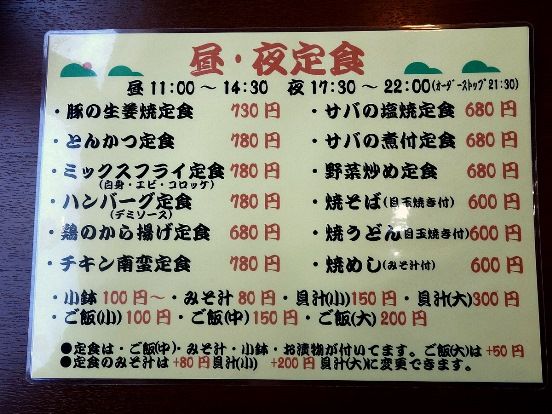 昼・夜定食
昼 11:00 ～ 14:30 夜 17:30 ～ 22:00(オーダーストップ21:30)
・豚の生姜焼定食 730 円
・サバの塩焼定食 680 円
・とんかつ定食 780 円
・サバの煮付定食 680 円
・ミックスフライ定食 780 円
(白身・エビ・コロッケ)
・野菜炒め定食 680 円
・ハンバーグ定食 780 円
(デミソース)
・焼そば(目玉焼き付) 600 円
・鶏のから揚げ定食 680 円
・焼うどん(目玉焼き付) 600 円
・チキン南蛮定食 780 円
・焼めし(みそ汁付) 600 円
・小鉢 100 円～ ・みそ汁 80 円 ・貝汁(小) 150 円 ・貝汁(大) 300 円
・ご飯(小) 100 円 ・ご飯(中) 150 円 ・ご飯(大) 200 円
●定食は・ご飯(中)・みそ汁・小鉢・お漬物が付いてます。ご飯(大)は +50 円
●定食のみそ汁は +80 円貝汁(小) +200 円貝汁(大)に変更できます。